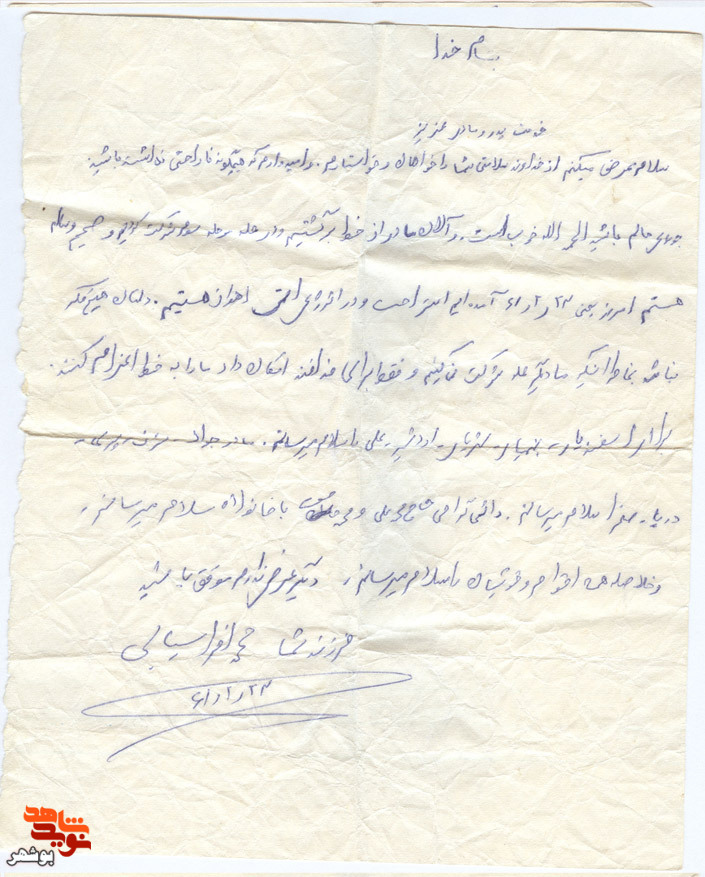 بنام خدا
خدمت پدر و مادر عزیز
سلام عرض میکنم از خداوند سلامتی شما را خواهان و خواستارم. و امیدوارم که هیچگونه ناراحتی نداشته باشید
جویای حالم باشید الحمد الله خوب است. و الان ما در از خط برگشتیم و در حمله مرحله سوم شرکت کردیم و صحیح و سالم
هستم امروز یعنی ۲۳ / ۲ / ۶۱ آمده ایم استراحت و در انرژی اتمی اهواز هستیم. دلتان هیچ فکر
نباشد بخاطر اینکه ما دیگر حمله شرکت نمی کنیم و فقط برای خدا امکان داد ما را به خط اعزام کنند.
اسفندیار - بهمنیار - شهریار - اردشیر - علی را سلام میرسانم. مادر جواد
دریا - صغرا سلام میرسانم. دائی حاج محمد علی و محمد با خانواده سلام میرسانم.
و خلاصه همه اقوام و خویشان را سلام میرسانم. دیگر عرضی ندارم موفق باشید
فرزند شما افراسیابی
۶۱/۲/۲۳
شاهد
نوید
بوشهر